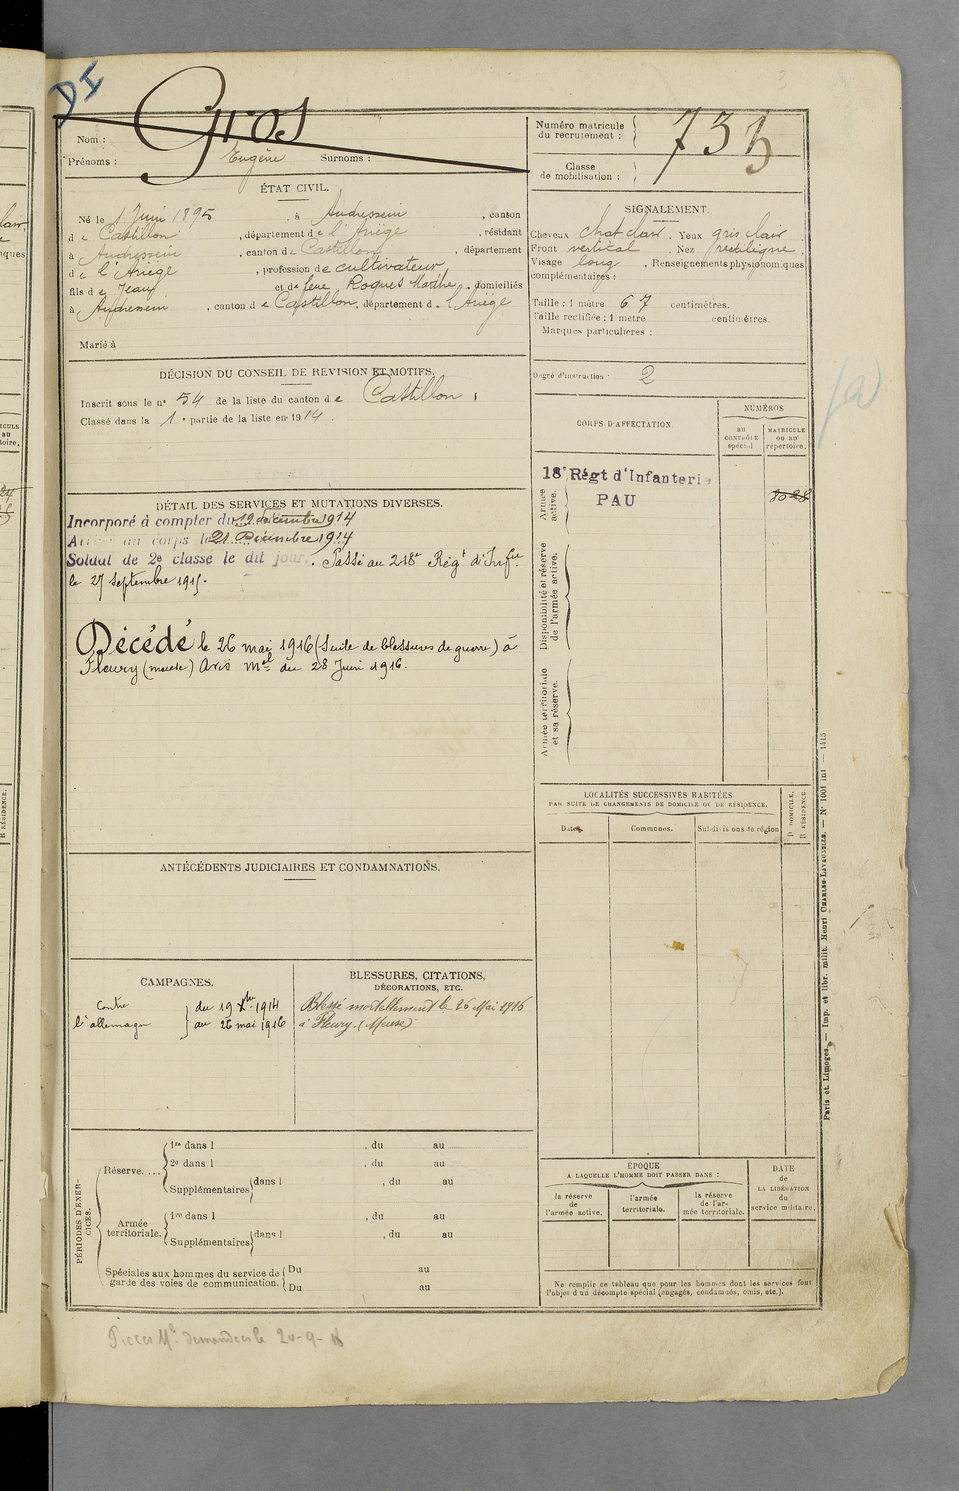 DI
Nom : Gros
Prénoms : Eugène Surnoms :
Numéro matricule du recrutement : 735
Classe de mobilisation :
ÉTAT CIVIL.
Né le 1 Juin 1895, à Audressein, canton
de Castillon, département de l'Ariège, résidant
à Audressein, canton de Castillon, département
de l'Ariège, profession de cultivateur
fils de Jean et de feue Roques Marthe, domiciliés
à Audressein, canton de Castillon, département d. l'Ariège
Marié à
SIGNALEMENT.
Cheveux chat clair. Yeux gris clair
Front vertical. Nez rectiligne
Visage long. Renseignements physionomiques
complémentaires :
Taille : 1 mètre 67 centimètres.
Taille rectifiée : 1 mètre centimètres.
Marques particulières :
Degré d'instruction : 2
DÉCISION DU CONSEIL DE REVISION ET MOTIFS.
Inscrit sous le n° 54 de la liste du canton de Castillon
Classé dans la 1e partie de la liste en 1914.
CORPS D'AFFECTATION.
NUMÉROS
au CONTRÔLE spécial
MATRICULE ou au répertoire.
Armée active.
18e Régt d'Infanterie
PAU
Disponibilité et réserve de l'armée active.
Armée territoriale et sa réserve.
DÉTAIL DES SERVICES ET MUTATIONS DIVERSES.
Incorporé à compter du 19 décembre 1914
Arrivé au corps le 21 Décembre 1914
Soldat de 2e classe le dit jour. Passé au 218e Régt d'Infie
le 27 Septembre 1915.
Décédé le 26 mai 1916 (Suite de blessures de guerre) à
Fleury (meuse) Avis Mel du 28 Juin 1916.
LOCALITÉS SUCCESSIVES HABITÉES
PAR SUITE DE CHANGEMENTS DE DOMICILE OU DE RÉSIDENCE.
Dates. Communes. Subdivisions de région
D DOMICILE.
R RÉSIDENCE
ANTÉCÉDENTS JUDICIAIRES ET CONDAMNATIONS.
CAMPAGNES.
Contre l'allemagne
du 19 Xbre 1914
au 26 mai 1916
BLESSURES, CITATIONS,
DÉCORATIONS, ETC.
Blessé mortellement le 26 Mai 1916
à Fleury. (Meuse)
PÉRIODES D'EXERCICES.
Réserve....
1re dans l , du au
2e dans l , du au
Supplémentaires dans l , du au
Armée territoriale.
1re dans l , du au
Supplémentaires dans l , du au
Spéciales aux hommes du service de garde des voies de communication.
Du au
Du au
ÉPOQUE
A LAQUELLE L'HOMME DOIT PASSER DANS :
la réserve de l'armée active.
l'armée territoriale.
la réserve de l'armée territoriale.
DATE de LA LIBÉRATION du service militaire.
Ne remplir ce tableau que pour les hommes dont les services font
l'objet d'un décompte spécial (engagés, condamnés, omis, etc.).
Paris et Limoges. — Imp. et libr. milit. Henri CHARLES-LAVAUZELLE. — N° 1001 int — 1415